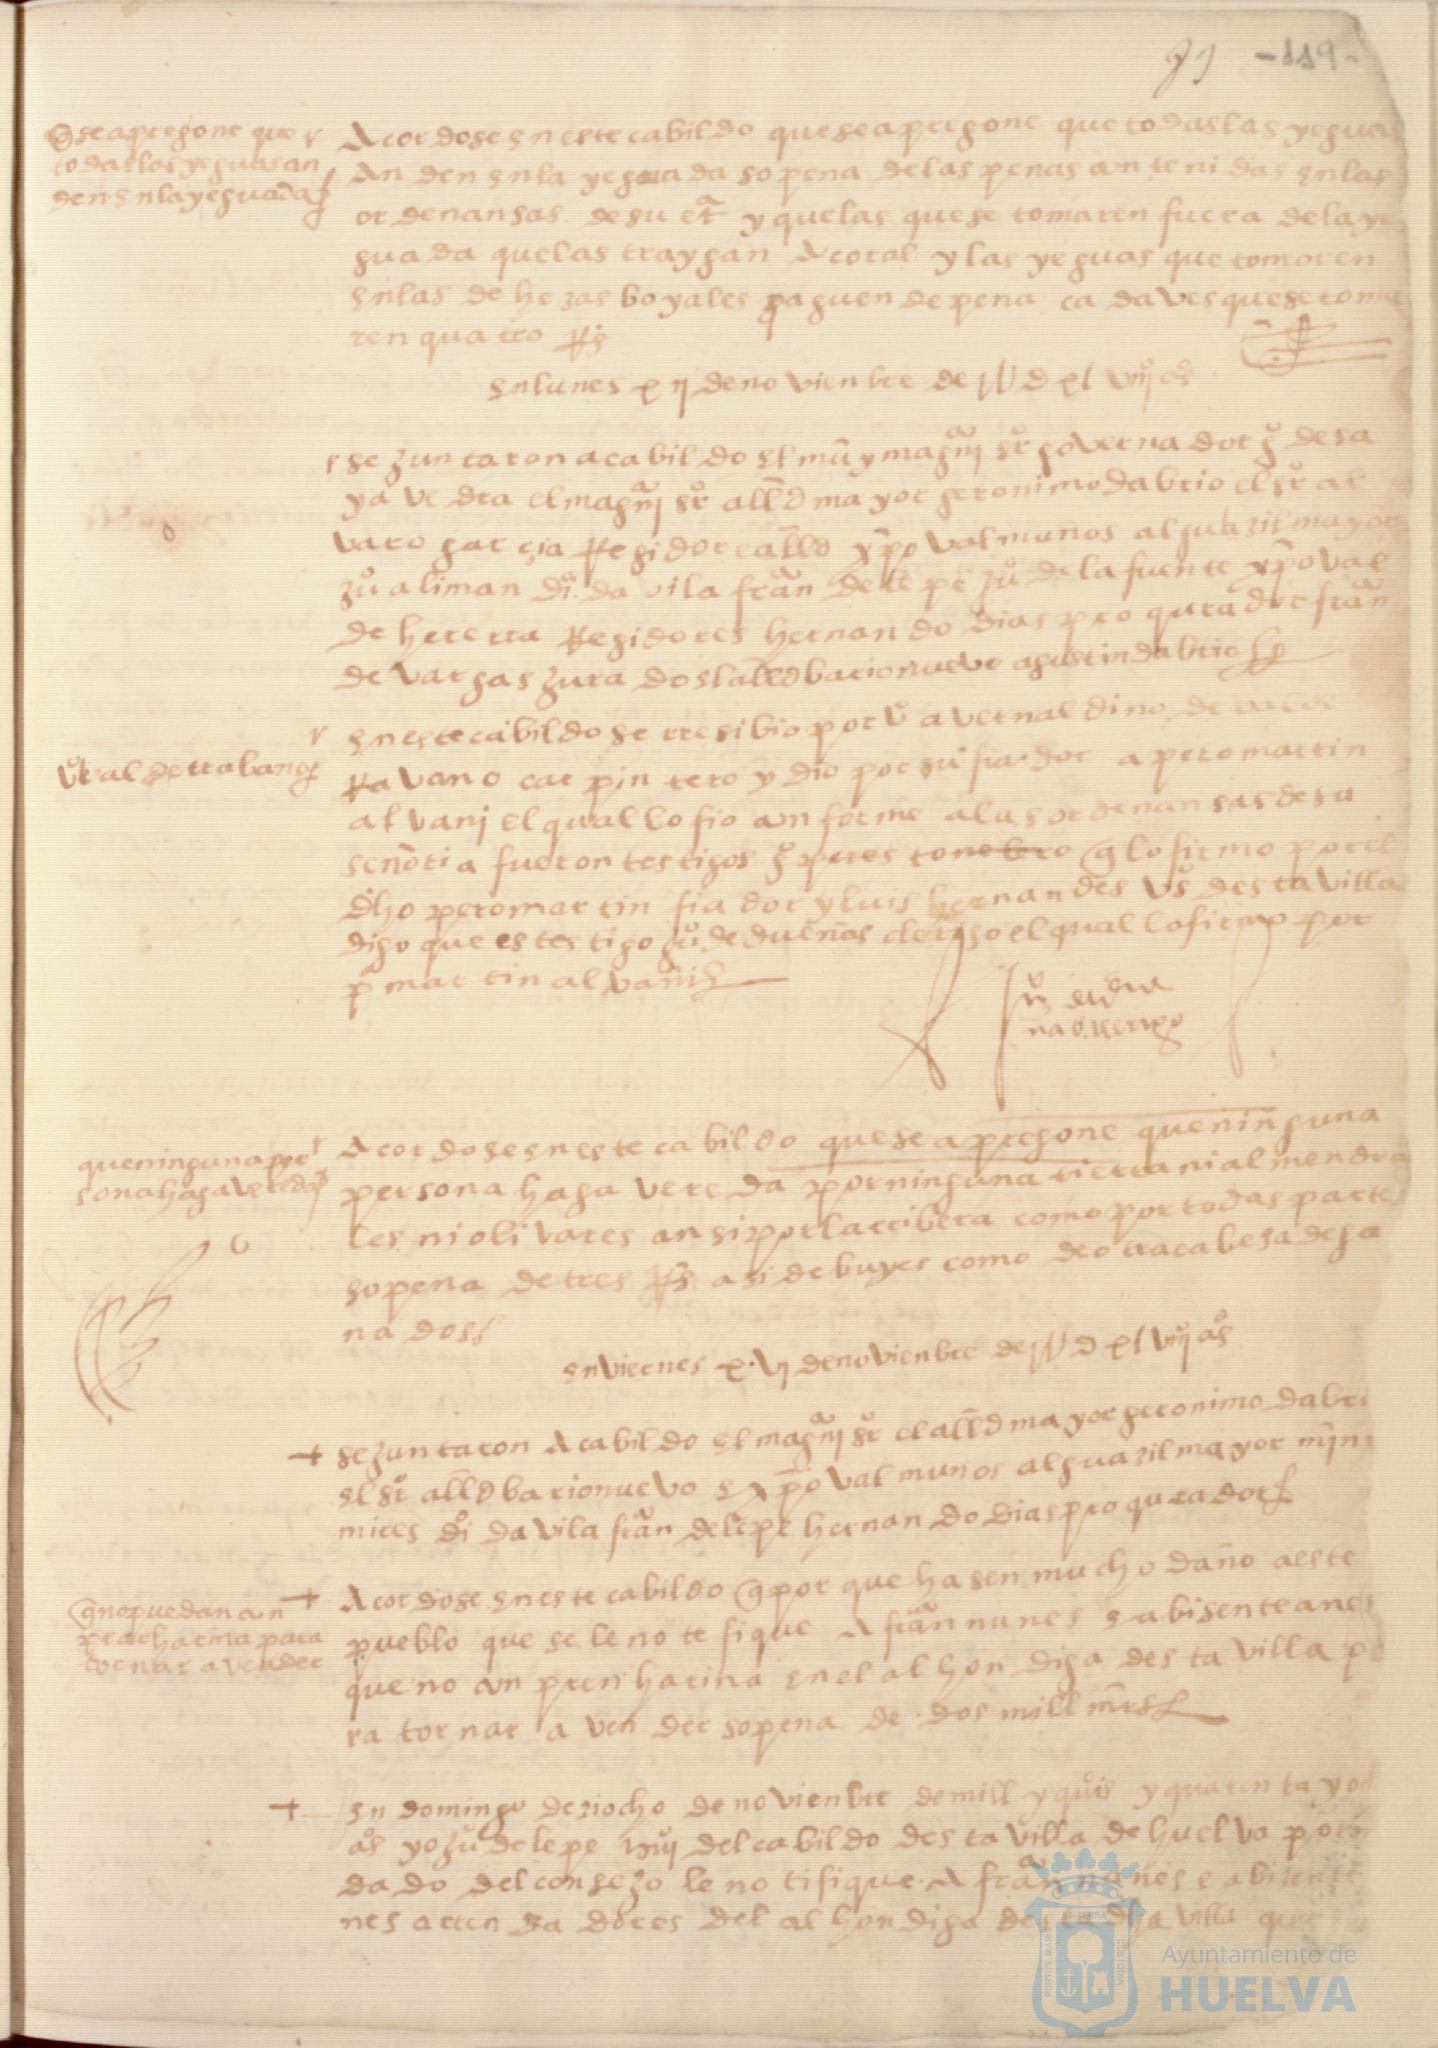 91 -119-
q se apregone que
todas las yeguas an
den en la yeguada
Acordose en este cabildo que se apregone que todas las yeguas
anden en la yeguada so pena de las penas contenidas en las
ordenansas de su srª y que las que se tomaren fuera de la ye
guada que las traygan a coral y las yeguas que tomaren
en las dehezas boyales paguen de pena cada ves que se toma
ren quatro Rs
en lunes xij de novienbre de jUdxlviijº aºs
se juntaron a cabildo el muy magºm sºr governador gº de sa
yavedra el magºm sºr alld mayor geronimo dabrio el sºr al
varo garçia Regidor e alld xpoval munos alguazil mayor
juº aliman diº davila franº de lepe juº de la fuente xpoval
de herrera Regidores hernando dias procurador franº
de vargas jurado el alld barionuevo agustin dabrio
vº val derrabano
en este cabildo se rresibio por vº a vernaldino de valde
Ravano carpintero y dio por su fiador a pero martin
alvanj el qual lo fio conforme a las ordenansas de su
señoria fueron testigos gº peres tonelero q lo firmo por el
dho pero martin fiador y luis hernandes vºs desta villa
digo que es testigo juº de dueñas clerigo el qual lo firmo por
pº martin alvañi
juº de due
ñas clerigo
que ninguna per
sona haga vereda
Acordose en este cabildo que se apregone que ninguna
persona haga vereda por ninguna tierra ni almendra
les ni olivares ansi por la rribera como por todas partes
so pena de tres Rs asi de buyes como de otra cabesa de ga
nados
en viernes xvj de novienbre de jUdxlviijº aºs
se juntaron a cabildo el magºm sºr el alld mayor geronimo dabri
el sºr alld barionuevo e xpoval munos alguazil mayor min
mires diº davila franº de lepe hernando dias procurador
q no puedan con
prar harina para
tornar a vender
Acordose en este cabildo q por que hasen mucho daño a este
pueblo que se le notefique a franº nunes e a bisente anes
que no conpren harina en el alhondiga desta villa pa
ra tornar a vender so pena de dos mill mrs
en domingo deziocho de novienbre de mill y quiºs y quarenta y och
aºs yo juº de lepe del cabildo desta villa de huelva por
dado del consejo le notifique a franº nunes e a bizente
nes arrendadores del alhondiga de la dha villa que
Ayuntamiento de
HUELVA
PORTUS MARIS ET TERRAE CUSTODIA